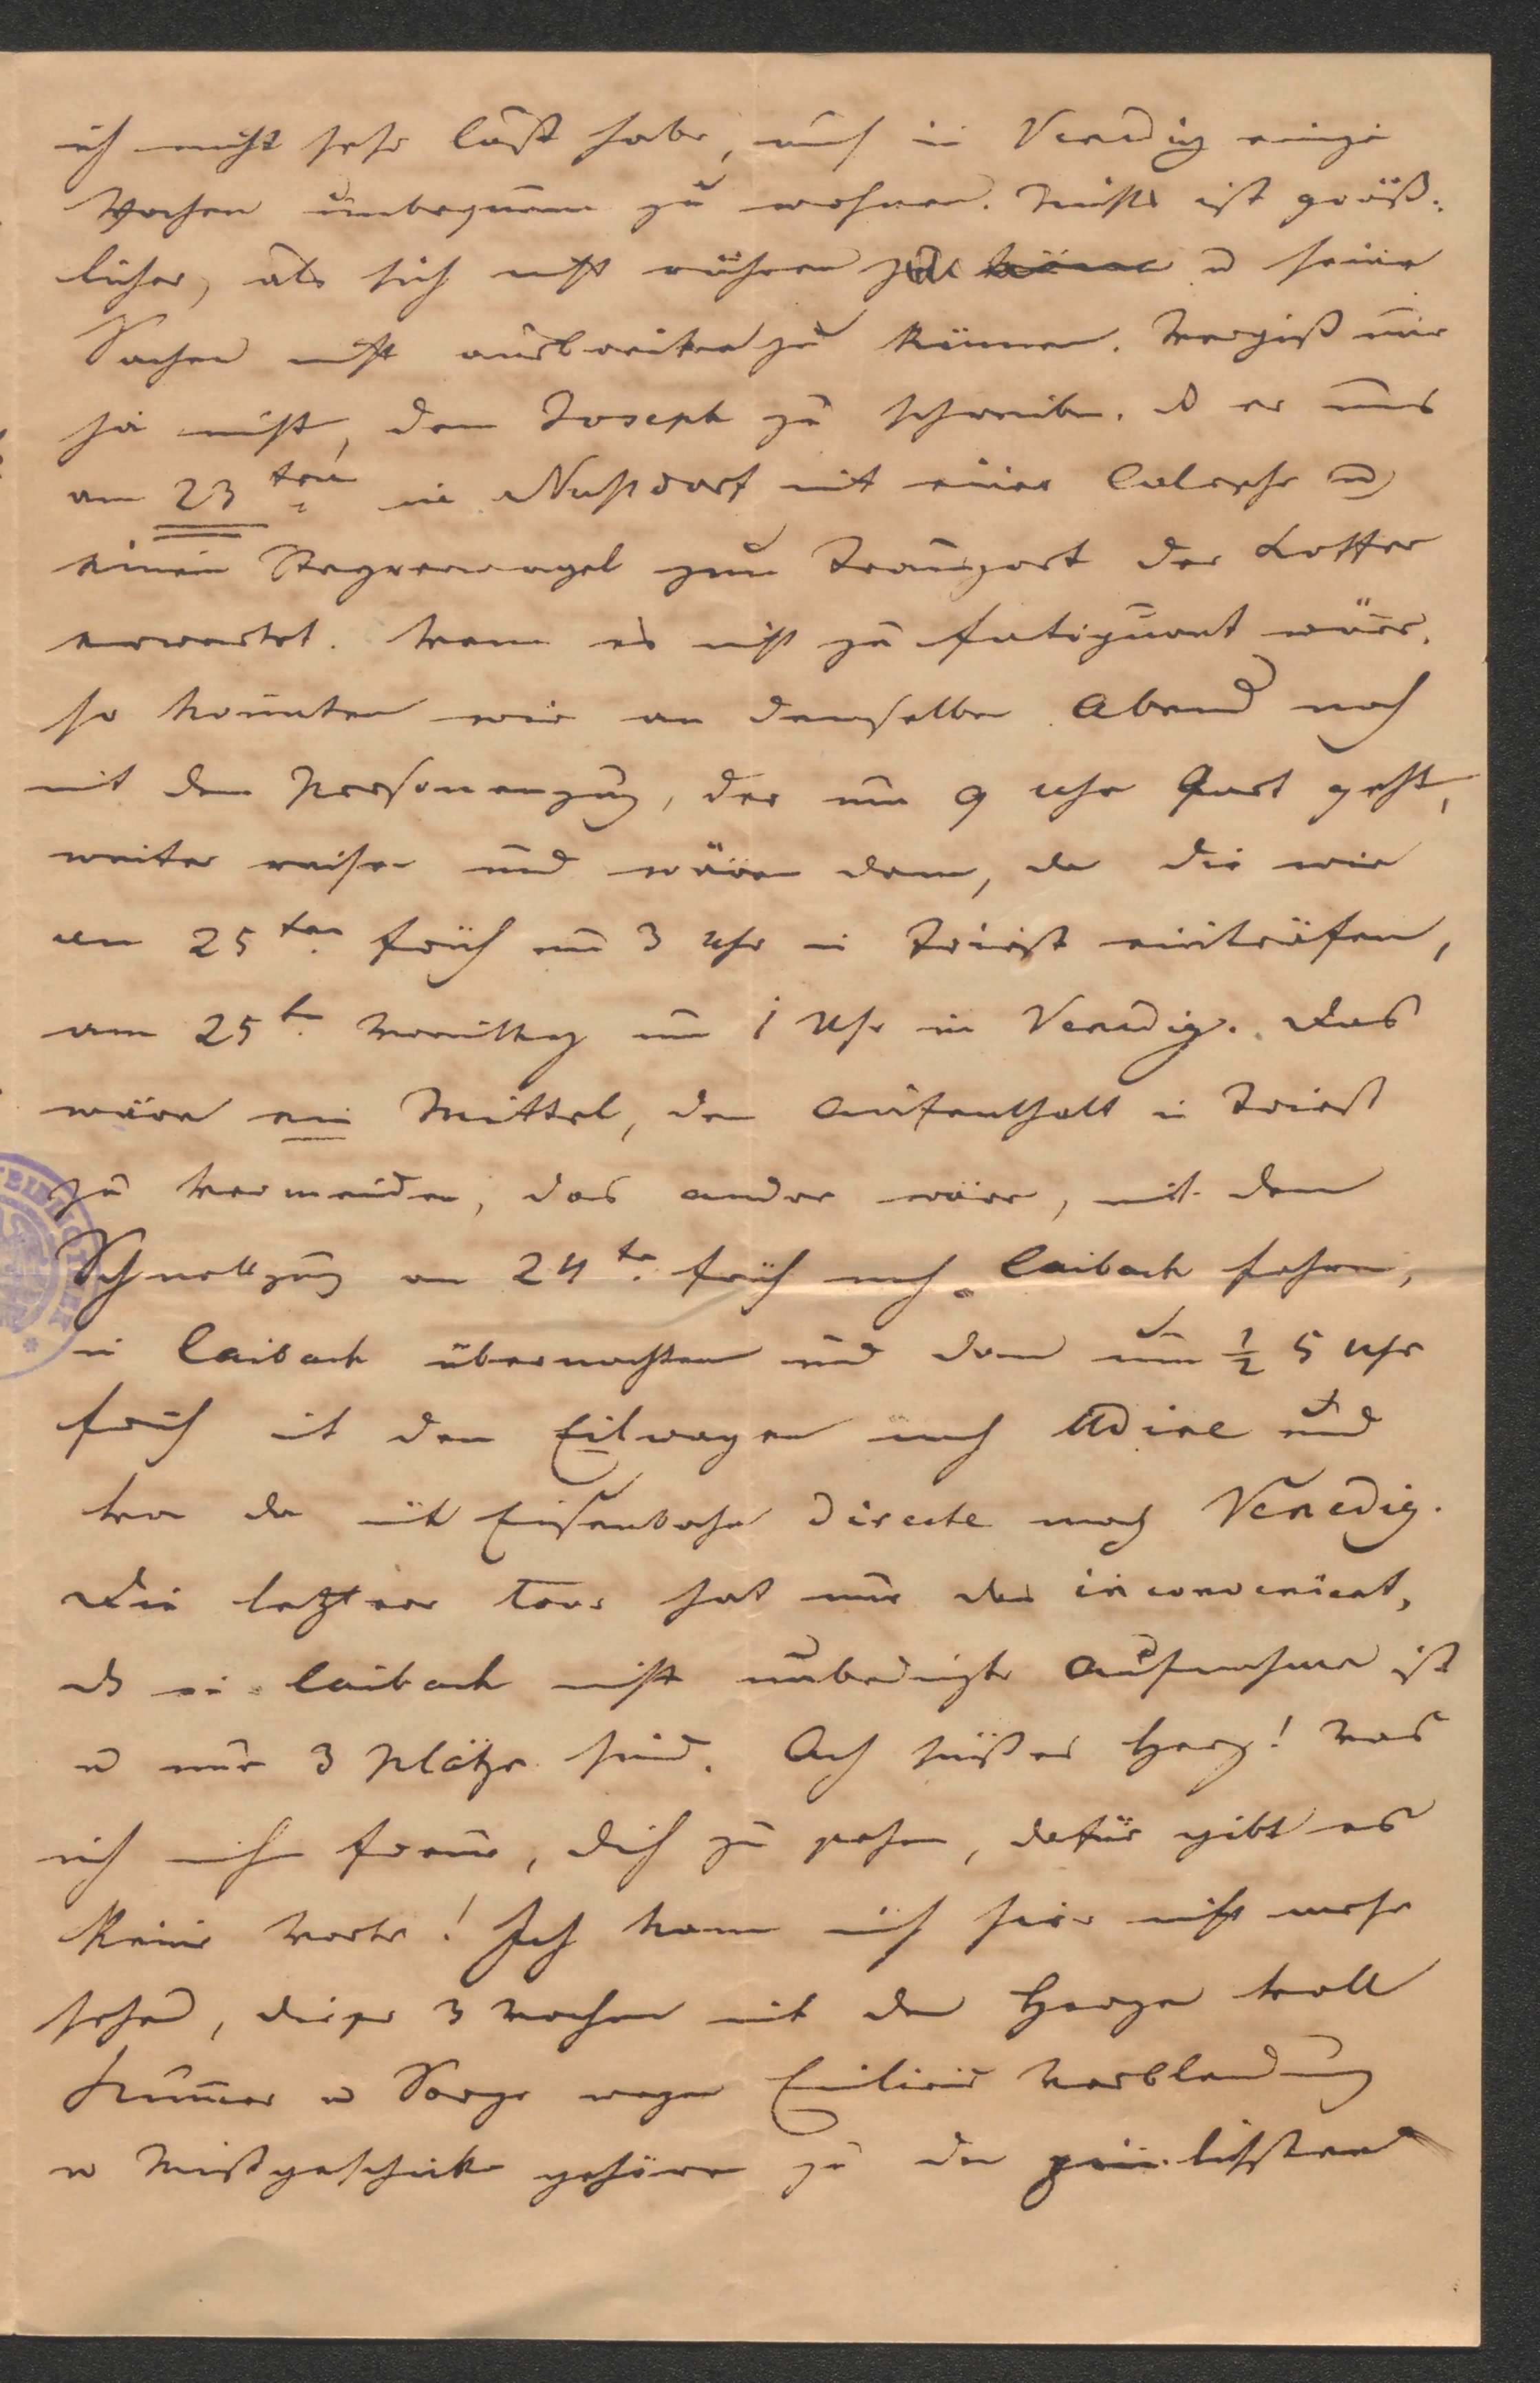 ich nicht sehr Lust habe, auch in Venedig einige
Wochen unbequem zu wohnen. Nichts ist gräß-
licher, als sich nicht rühren zu u seine
Sachen nicht ausbreiten zu können. Vergiß nur
ja nicht, dem Joseph zu schreiben, er uns
am 23ten in Nußdorf mit einer Calesche u
einem zum Transport der Koffer
erwartet. Wenn es nicht zu fatiguant wäre,
so könnten wir an demselben Abend noch
mit dem Personenzug, der um 9 Uhr geht,
weiter reisen und wären dann, da wir
am 25ten früh um 3 Uhr in Triest einträfen,
am 25t. Vormittag um 1 Uhr in Venedig. Das
wäre ein Mittel, den Aufenthalt in Triest
zu vermeiden, das andre wäre, mit dem
Schnellzug am 24t. früh nach Laibach fahren,
in Laibach übernachten und dann um ½ 5 Uhr
früh mit dem Eilwagen nach Udine und
von da mit Eisenbahn directe nach Venedig.
Die letztere Tour hat nur das inconvenient,
daß in Laibach nicht unbedingte Aufnahme ist
u nur 3 Plätze sind. Ach süßes Herz! Was
ich mich freue, dich zu sehen, dafür gibt es
keine Worte! Ich kann mich hier nicht mehr
sehen, diese 3 Wochen mit dem Herzen voll
Kummer u Sorge wegen Emiliens Verblendung
u Mißgeschick gehören zu den peinlichsten